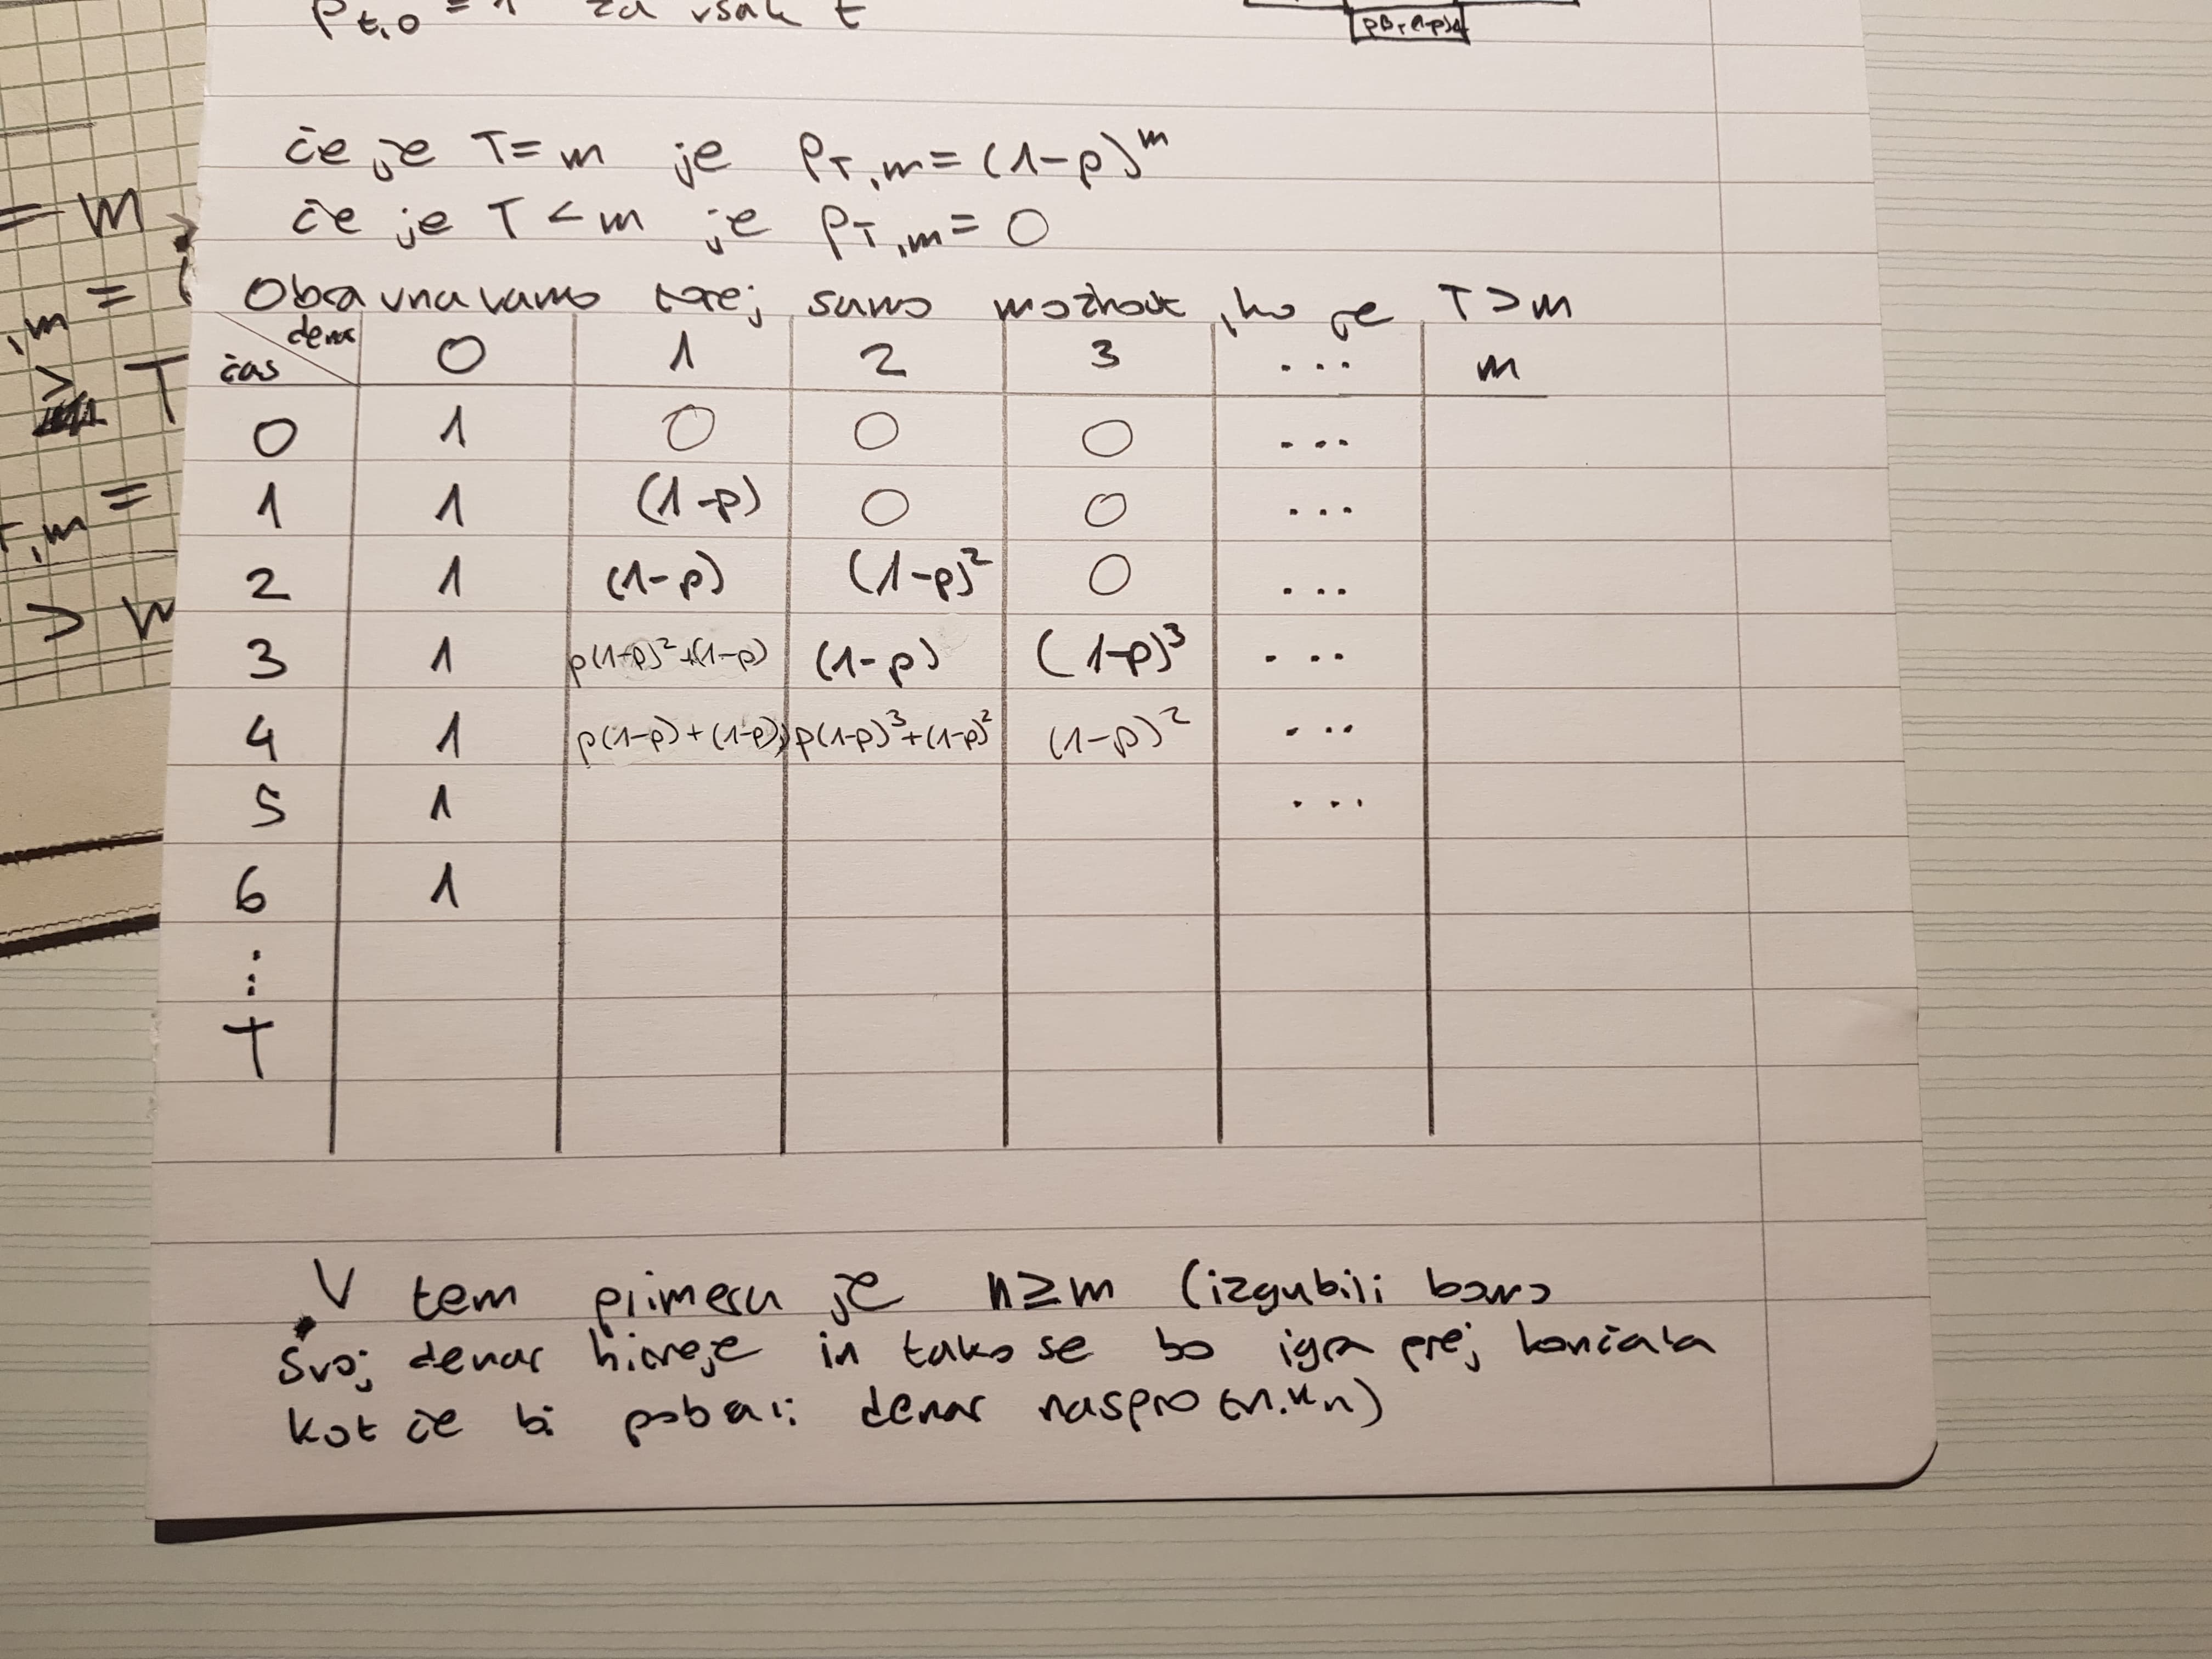 P t,0 = 1 za vsak t
če je T = m je P T,m = (1-p)^m
če je T < m je P T,m = 0
Obravnavamo torej samo možnost, ko je T > m
čas denar 0 1 2 3 ... m
0 1 0 0 0 ...
1 1 (1-p) 0 0 ...
2 1 (1-p) (1-p)² 0 ...
3 1 p(1-p)²+(1-p) (1-p) (1-p)³ ...
4 1 p(1-p)+(1-p) p(1-p)³+(1-p)² (1-p)² ...
5 1 ...
6 1
⋮
T
V tem primeru je n ≥ m (izgubili bomo
svoj denar hitreje in tako se bo igra prej končala
kot če bi pobrali denar
= m
,m =
≥ T
T,m =
> m